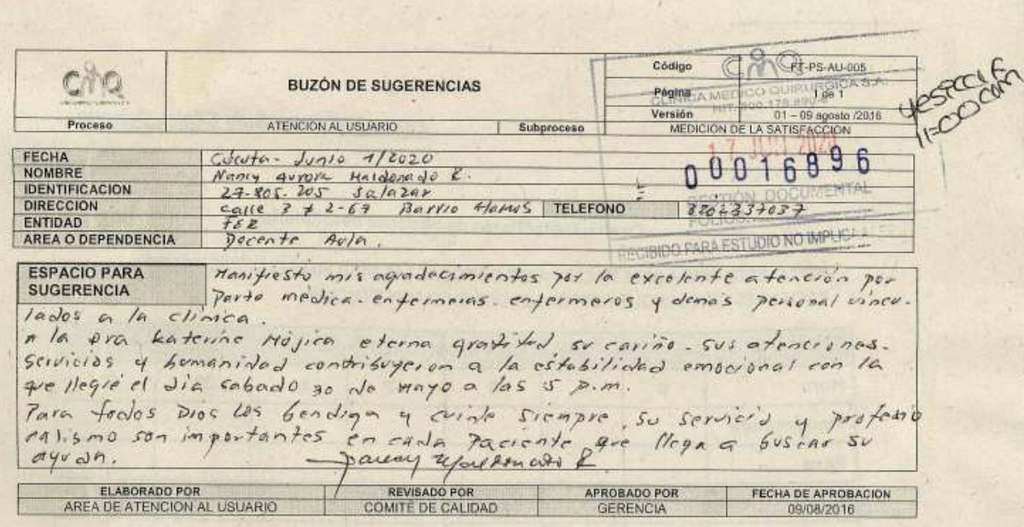 cmq
BUZÓN DE SUGERENCIAS
Código FT-PS-AU-005
Página 1 de 1
Versión 01 – 09 agosto /2016
Proceso ATENCION AL USUARIO Subproceso MEDICION DE LA SATISFACCION
CLINICA MEDICO QUIRURGICA S.A.
17 JUN 2020
00016896
GESTIÓN DOCUMENTAL
FOLIOS
RECIBIDO PARA ESTUDIO NO IMPLICA
FECHA Cúcuta - Junio 1/2020
NOMBRE Nancy Aurora Maldonado R.
IDENTIFICACION 27.805.205 Salazar
DIRECCION calle 3 # 2-67 Barrio Alamos TELEFONO
ENTIDAD
AREA O DEPENDENCIA Docente Aula.
ESPACIO PARA SUGERENCIA
Manifiesto mis agradecimientos por la excelente atención por
parte médica - enfermeras - enfermeros y demás personal vincu-
lados a la clínica.
A la Dra Katerine Mójica eterna gratitud su cariño - sus atenciones -
servicios y humanidad contribuyeron a la estabilidad emocional con la
que llegué el día sabado 30 de Mayo a las 5 p.m.
Para todos Dios los bendiga y cuide siempre, su servicio y profesio
nalismo son importantes en cada paciente que llega a buscar su
ayuda.
Nancy Maldonado R
ELABORADO POR REVISADO POR APROBADO POR FECHA DE APROBACION
AREA DE ATENCION AL USUARIO COMITÉ DE CALIDAD GERENCIA 09/08/2016